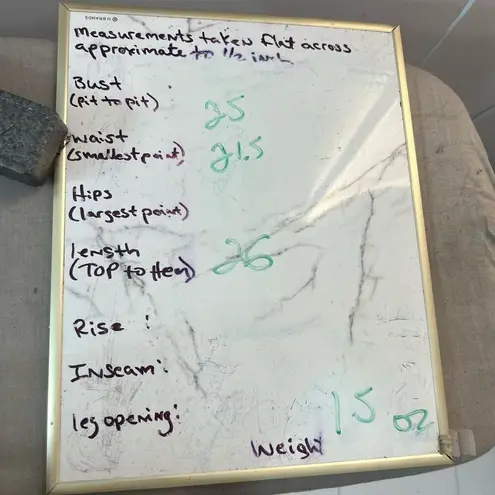 U BRANDS
measurements taken flat across
approximate to 1/2 inch
Bust
(pit to pit) 25
waist
(smallest point) 21.5
Hips
(largest point)
length
(TOP to Hem) 26
Rise :
Inseam:
leg opening:
Weight 15 oz